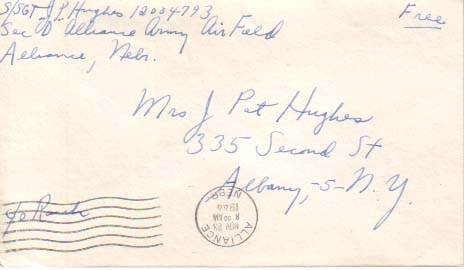 S/SGT J P Hughes 12004793
Sec "D" Alliance Army Air Field
Alliance, Nebr.
Free
Mrs J Pat Hughes
335 Second St
Albany,-5-N.Y.
ALLIANCE
NOV 23
8 30 AM
1944
NEBR.